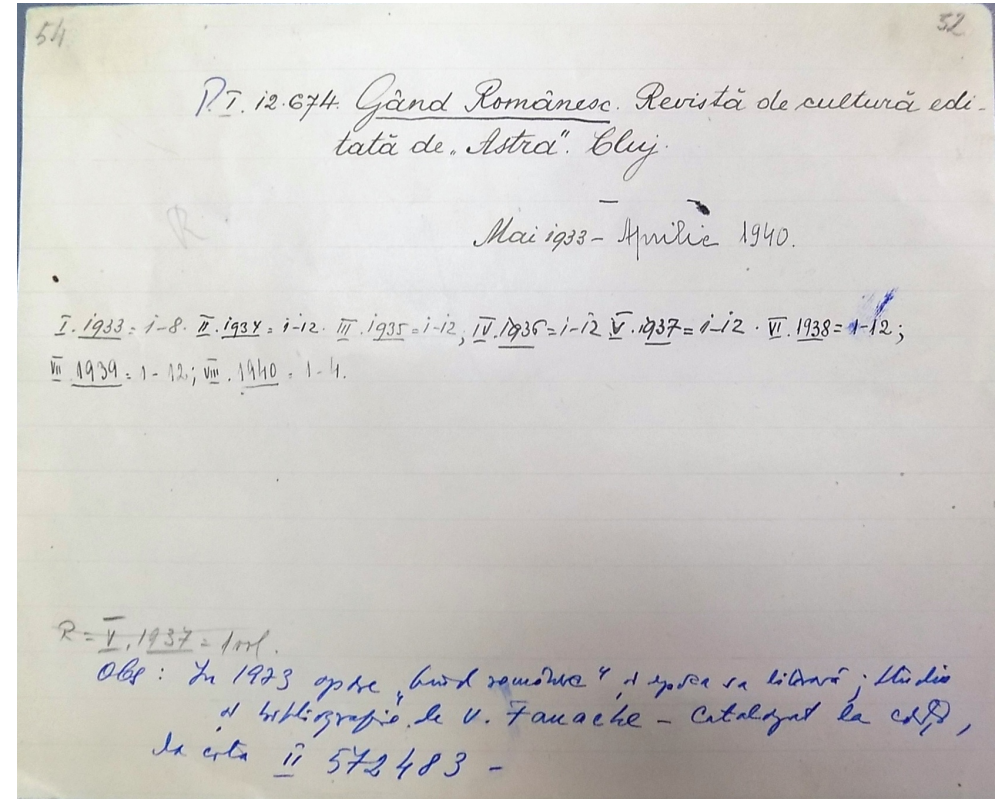 54
52
P.I.12.674. Gând Românesc. Revistă de cultură edi-
tată de „Astra". Cluj.
R
Mai 1933 – Aprilie 1940.
I. 1933 = 1-8. II. 1934 = 1-12. III. 1935 = 1-12, IV. 1936 = 1-12 V. 1937 = 1-12. VI. 1938 = 1-12;
VII. 1939 = 1-12; VIII. 1940 = 1-4.
R = V. 1937 = 1 vol.
Obs: In 1973 apare „Gând românesc" și epoca sa literară; studiu
și bibliografie de V. Fanache – Catalogat la cărți,
la cota II 572483 –